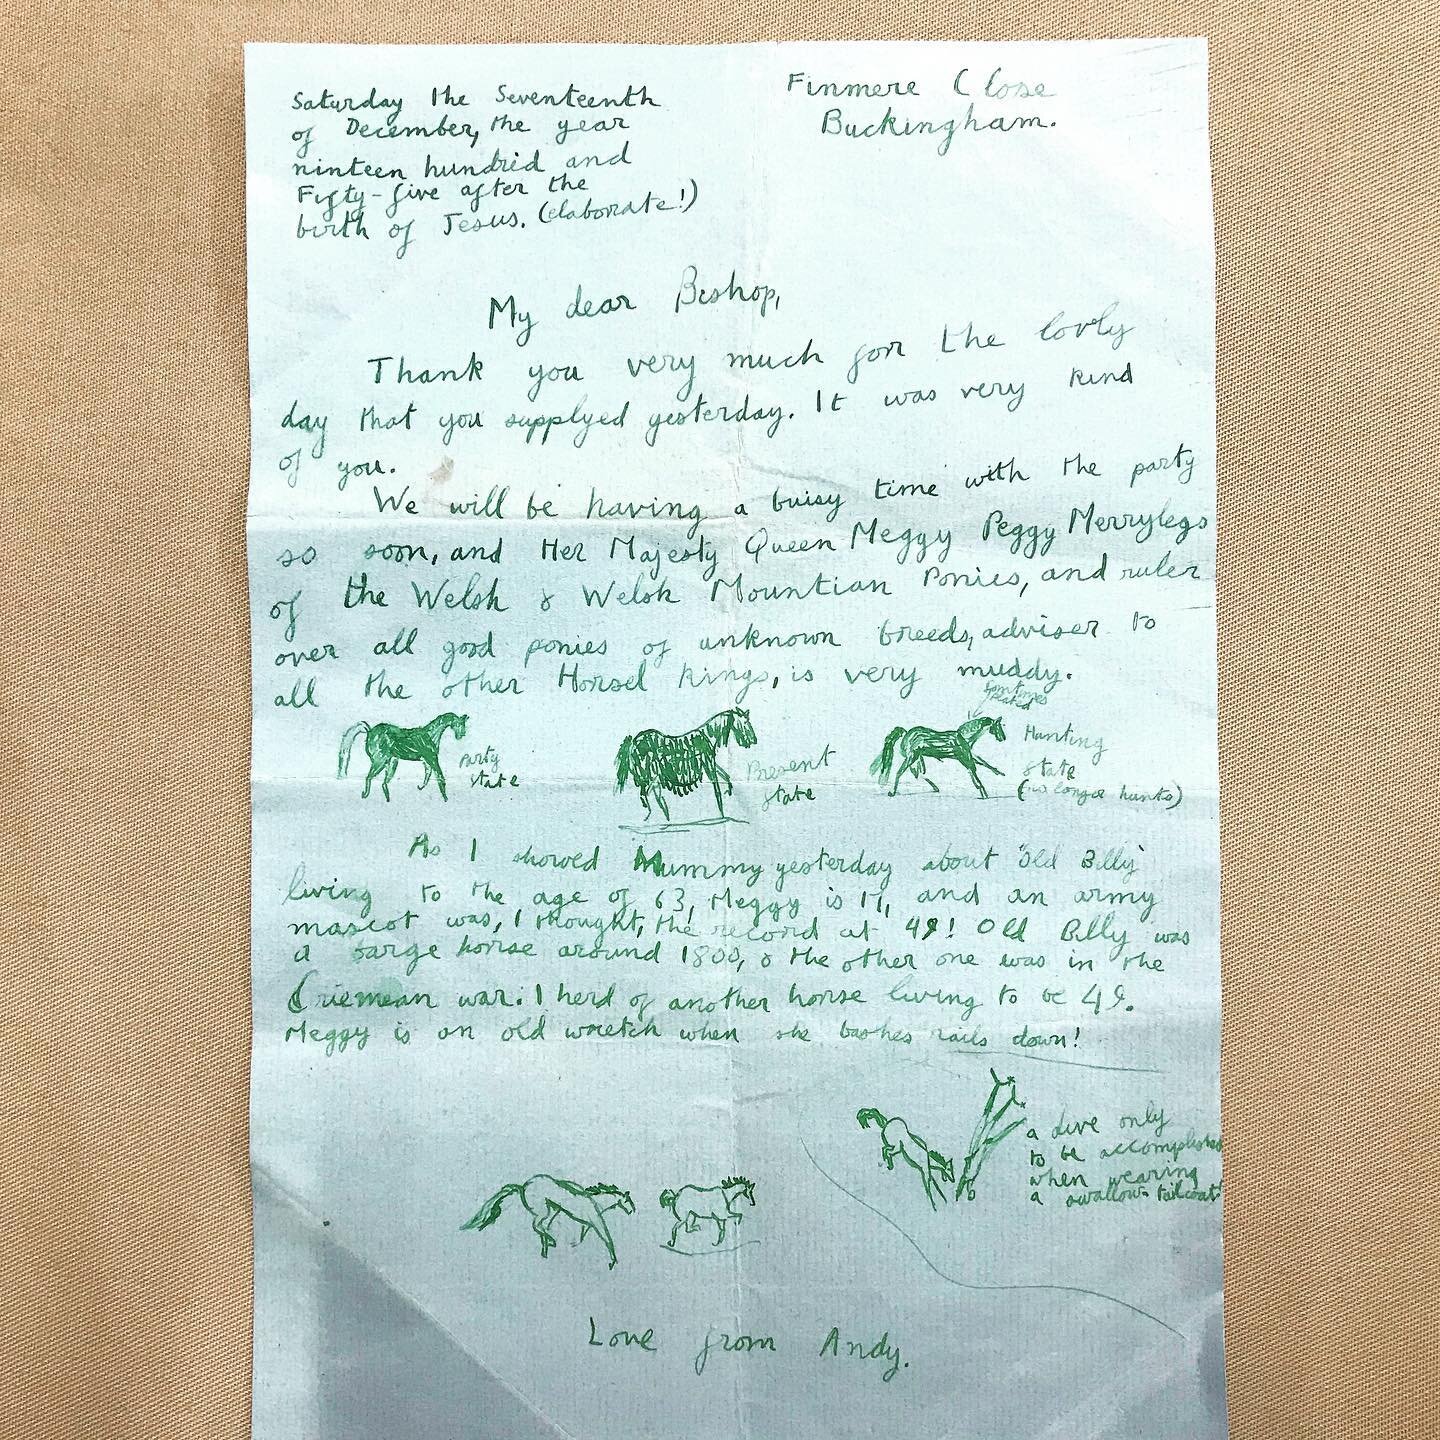 Saturday the Seventeenth
of December, the year
nineteen hundrid and
Fifty-five after the
birth of Jesus. (elaborate!)
Finmere Close
Buckingham.
My dear Bishop,
Thank you very much for the lovly
day that you supplyed yesterday. It was very kind
of you.
We will be having a buisy time with the party
so soon, and Her Majesty Queen Meggy Peggy Merrylegs
of the Welsh & Welsh Mountian Ponies, and ruler
over all good ponies of unknown breeds, adviser to
all the other Horsel Kings, is very muddy.
Party
state
Present
state
Hunting
state
(no longer hunts)
As I showed Mummy yesterday about 'Old Billy'
living to the age of 63, Meggy is 17, and an army
mascot was, I thought, the record at 49! Old Billy was
a barge horse around 1800, & the other one was in the
Criemean war. I herd of another horse living to be 49.
Meggy is an old wretch when she bashes rails down!
a dive only
to be accomplished
when wearing
a swallow tailcoat
Love from Andy.